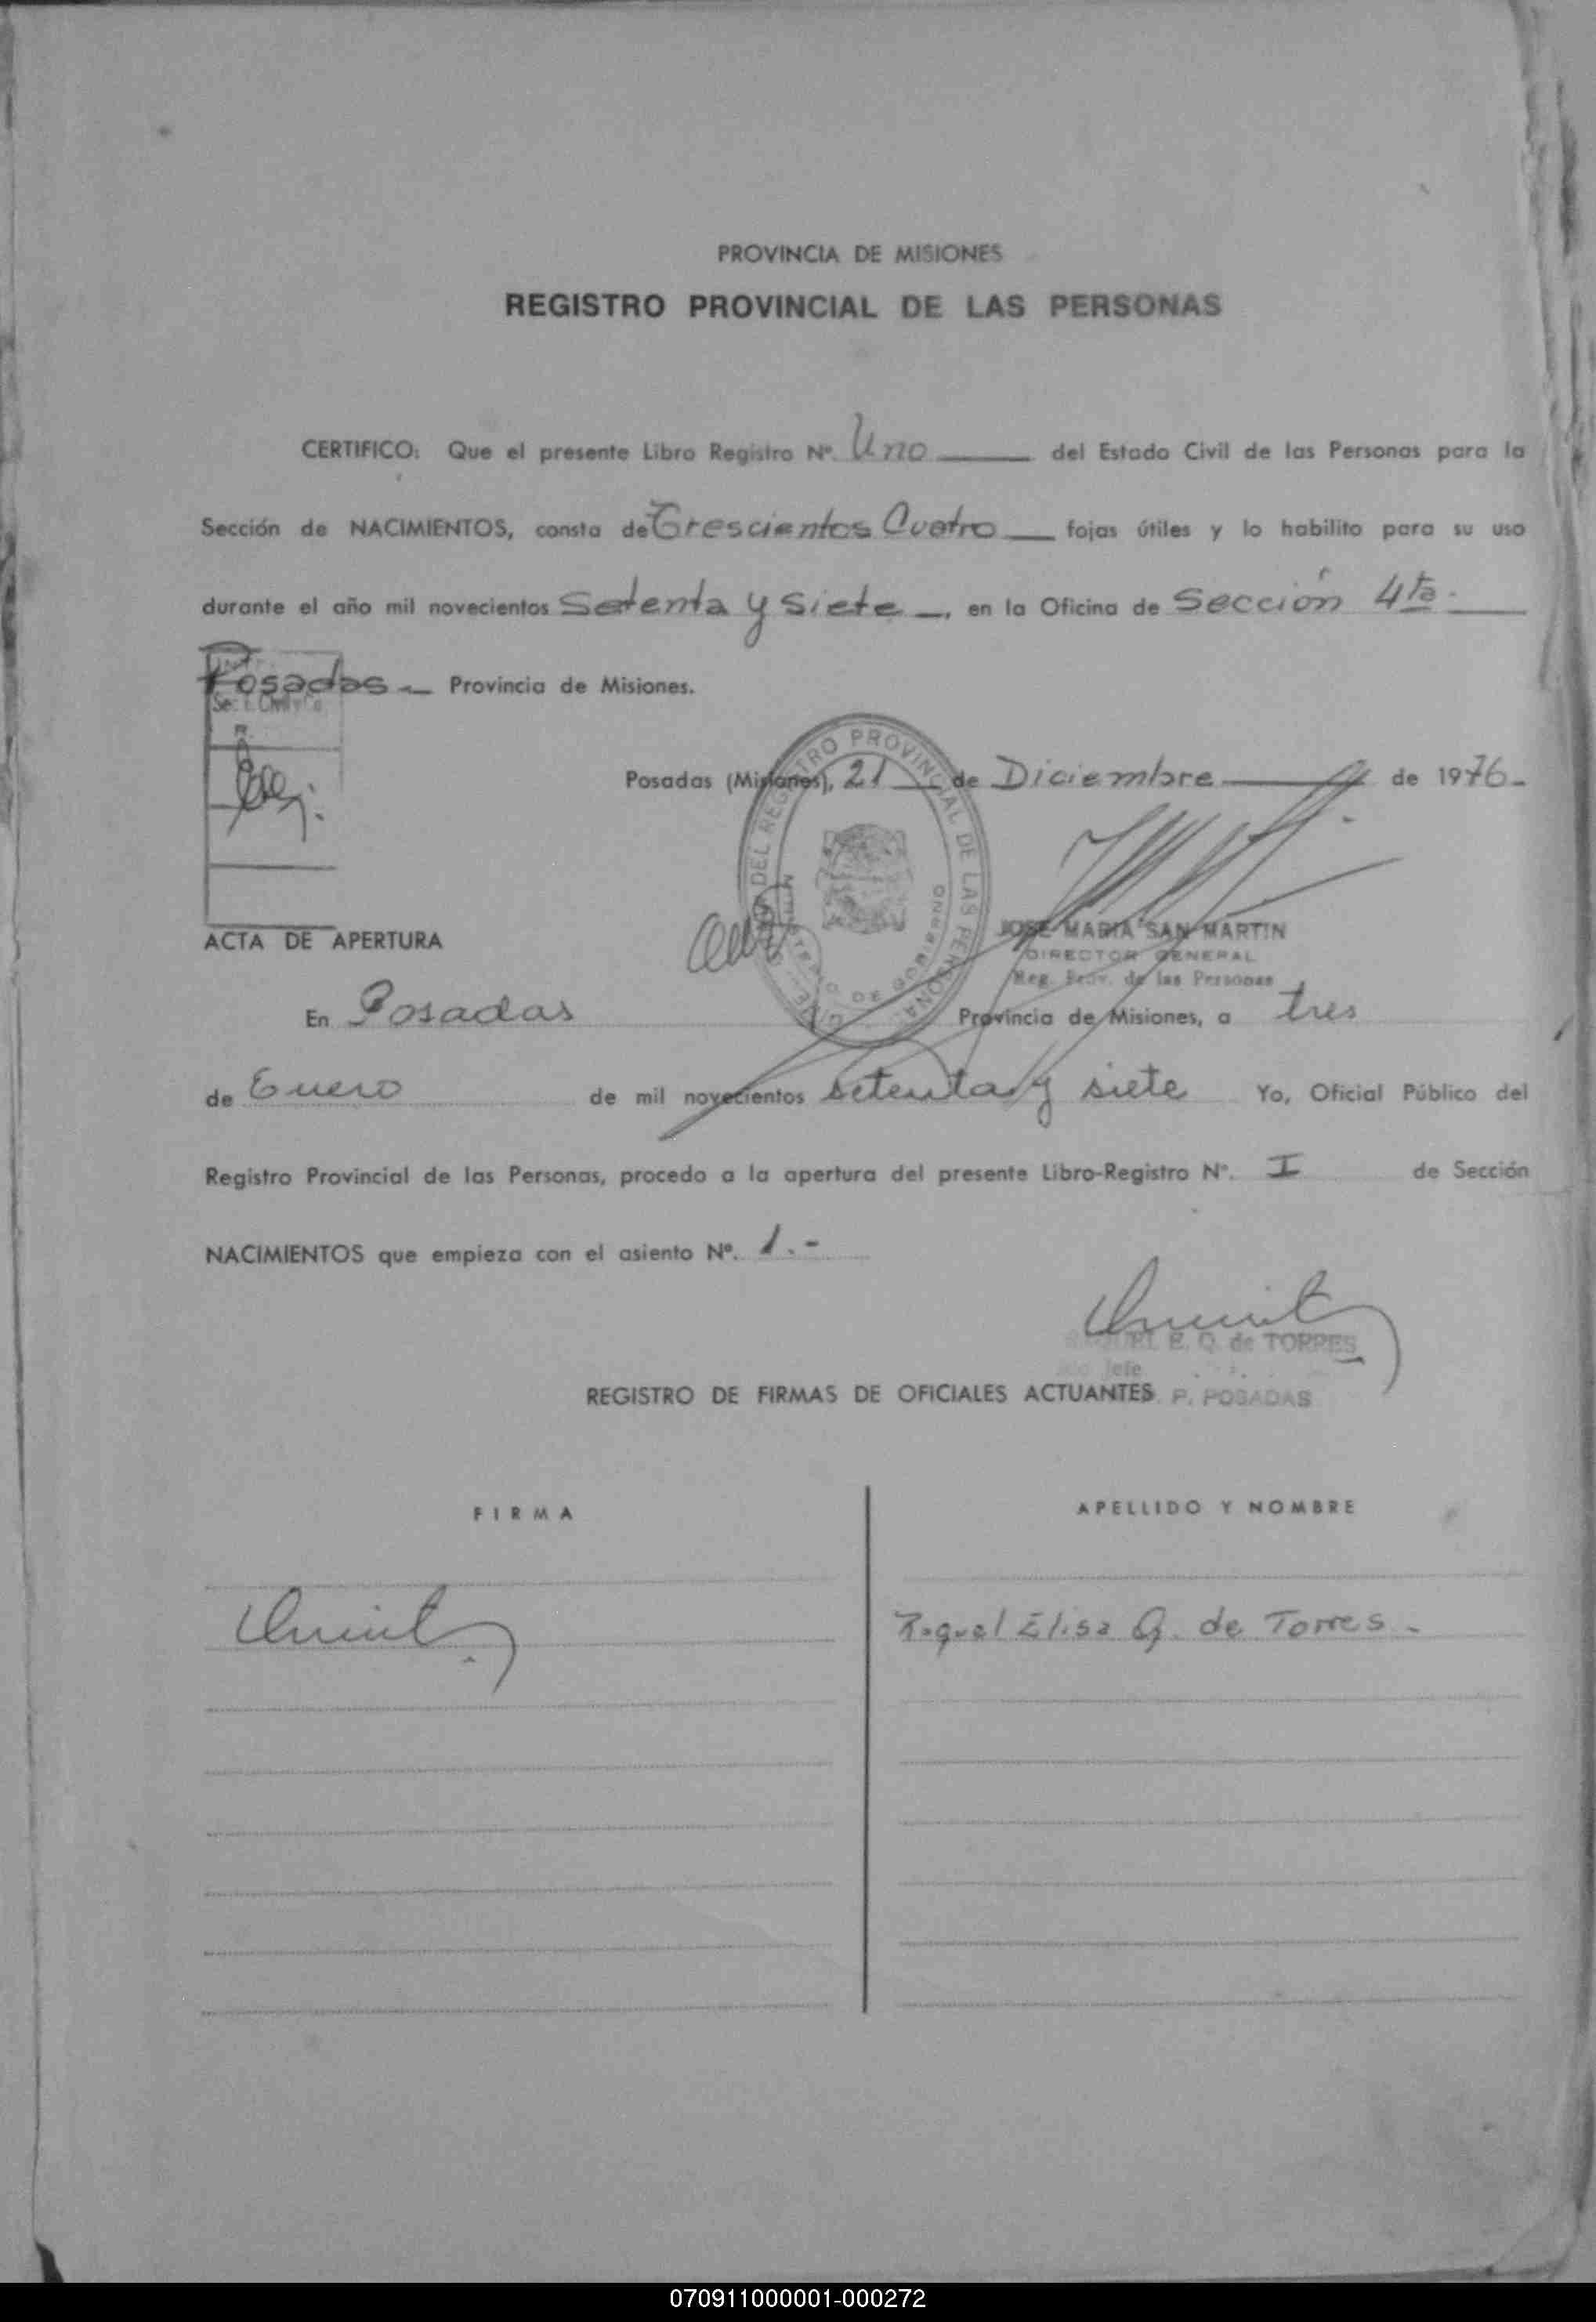 PROVINCIA DE MISIONES
REGISTRO PROVINCIAL DE LAS PERSONAS
CERTIFICO: Que el presente Libro Registro Nº. Uno del Estado Civil de las Personas para la
Sección de NACIMIENTOS, consta de Trescientos Cuatro fojas útiles y lo habilito para su uso
durante el año mil novecientos Setenta y Siete -, en la Oficina de Sección 4ta.
Posadas - Provincia de Misiones.
Posadas (Misiones), 21 de Diciembre de 1976-
DEL REGISTRO PROVINCIAL DE LAS PERSONAS
JOSE MARIA SAN MARTIN
DIRECTOR GENERAL
Reg. Prov. de las Personas
ACTA DE APERTURA
En Posadas Provincia de Misiones, a tres
de Enero de mil novecientos setenta y siete Yo, Oficial Público del
Registro Provincial de las Personas, procedo a la apertura del presente Libro-Registro Nº. I de Sección
NACIMIENTOS que empieza con el asiento Nº. 1.-
RAQUEL E. Q. de TORRES
Jefe
P. POSADAS
REGISTRO DE FIRMAS DE OFICIALES ACTUANTES
FIRMA APELLIDO Y NOMBRE
Raquel Elisa Q. de Torres -
070911000001-000272